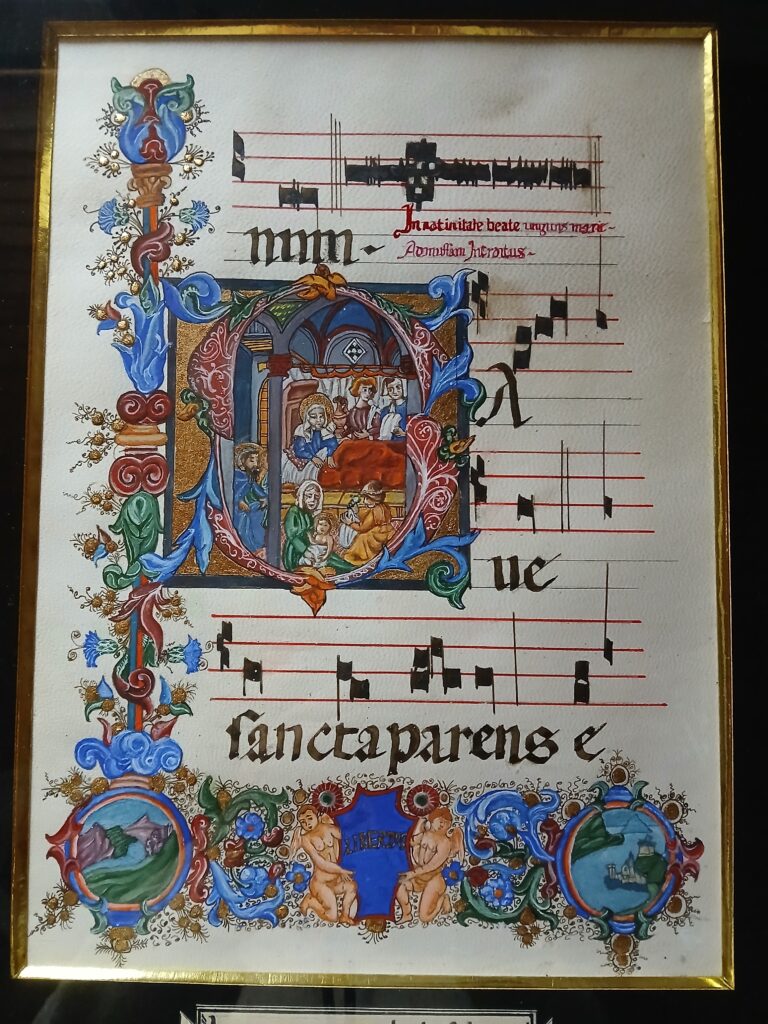 In natiuitate beate uirginis marie
Ad missam Introitus
A
ue
sancta parens e
LIBERTAS